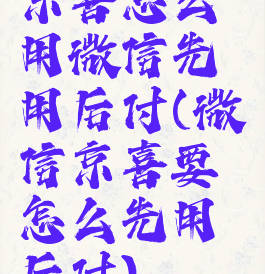 京喜怎么
用微信先
用后付(微
信京喜要
怎么先用
后付)